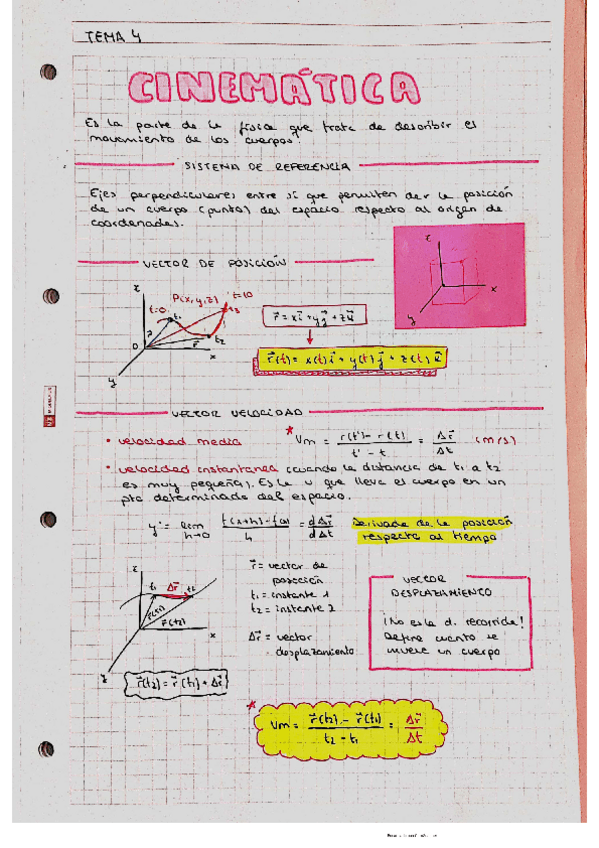 TEMA 4
CINEMÁTICA
Es la parte de la física que trata de describir el
movimiento de los cuerpos.
SISTEMA DE REFERENCIA
Ejes perpendiculares entre sí que permiten der la posición
de un cuerpo (punto) del espacio respecto al origen de
coordenadas.
z
x
y
VECTOR DE POSICIÓN
z
P(x,y,z) t=10
t=0 t1 t3
t2
0 r x
y
r⃗ = xi⃗ + yj⃗ + zk⃗
r⃗(t) = x(t) i⃗ + y(t) j⃗ + z(t) k⃗
VECTOR VELOCIDAD
• velocidad media * Vm = r(t') - r(t) / t' - t = Δr⃗ / Δt (m/s)
• velocidad instantánea (cuando la distancia de t1 a t2
es muy pequeña). Es la v que lleva el cuerpo en un
pto determinado del espacio.
y' = lim h→0 f(x+h) - f(x) / h = dΔr⃗ / dΔt
Derivada de la posición
respecto al tiempo
z
t1 Δr⃗ t2
r⃗(t1)
r⃗(t2)
x
r⃗(t2) = r⃗(t1) + Δr⃗
r⃗ = vector de
posición
t1 = instante 1
t2 = instante 2
Δr⃗ = vector
desplazamiento
VECTOR
DESPLAZAMIENTO
¡No es la d. recorrida!
Define cuánto se
mueve un cuerpo
* Vm = r⃗(t2) - r⃗(t1) / t2 - t1 = Δr⃗ / Δt